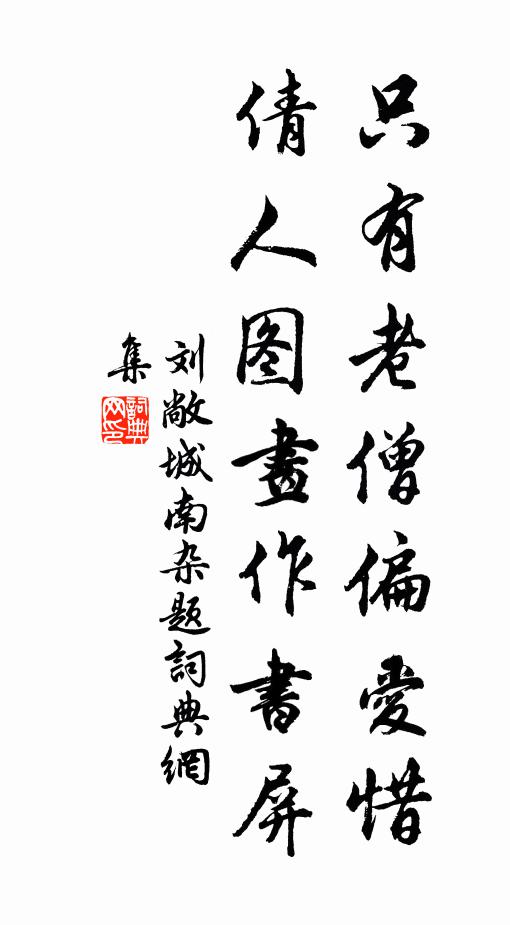 只有老僧偏爱惜
倩人图畫作書屏
刘敞城南杂题詞典網
集
詞典网印